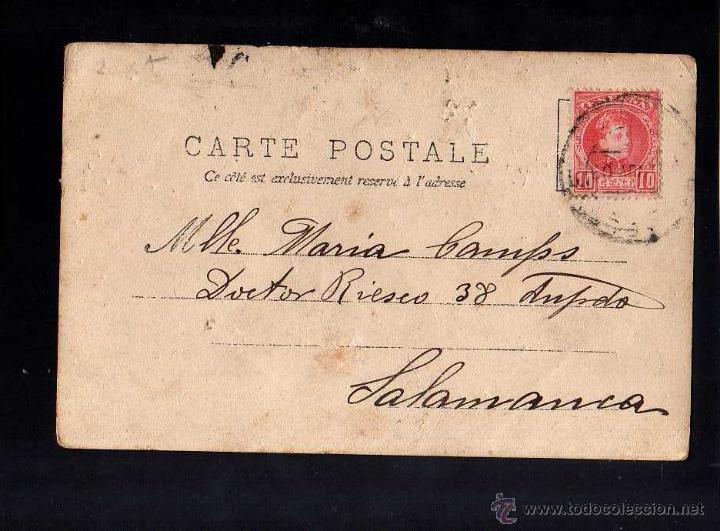 CARTE POSTALE
Ce côté est exclusivement reservé à l'adresse
10 CENT.s 10
Mlle. Maria Camps
Doctor Riesco 38
Salamanca
© www.todocoleccion.net